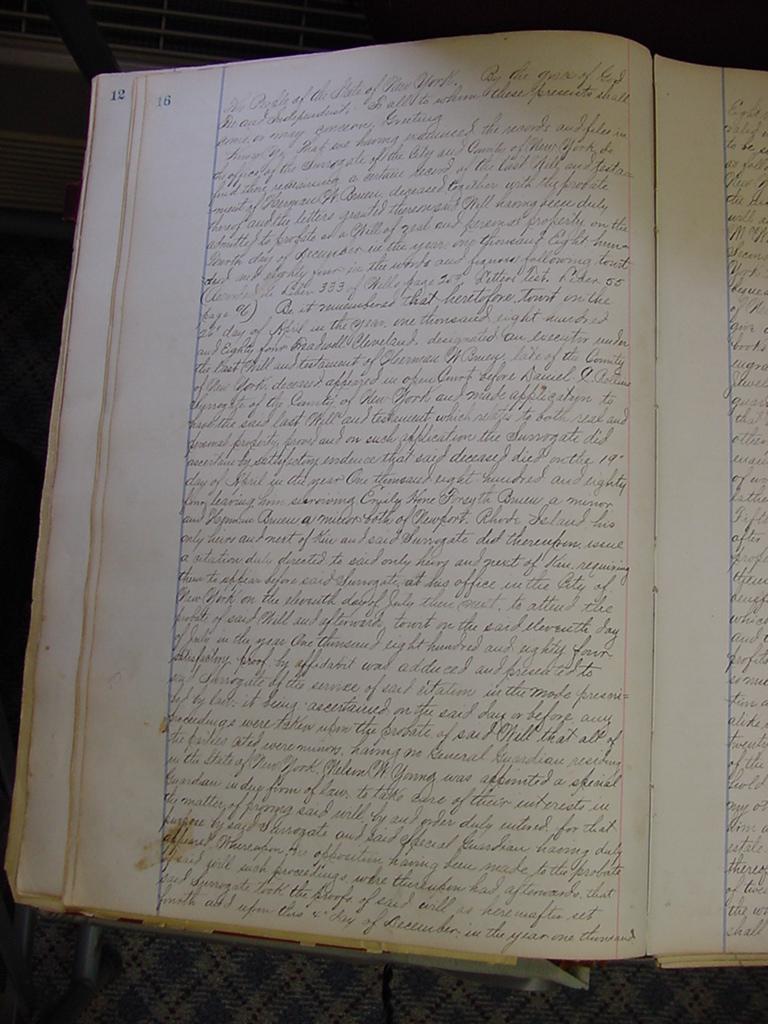 12 16
The People of the State of New York, By the grace of God
Free and Independent, To all to whom these presents shall
come or may concern, Greeting
Know Ye That we having examined the records and files in
the office of the Surrogate of the City and County of New York do
find there remaining a certain record of the Last Will and Testa-
ment of Herman W Bruen, deceased together with the probate
thereof and the letters granted thereon said Will having been duly
admitted to probate as a Will of real and personal property on the
fourth day of December in the year one thousand Eight hun-
dred and eighty four in the words and figures following towit
Liber 333 of Wills page 200 Letters Test. Liber 55
page 96) Be it remembered that heretofore, towit on the
day of April in the year one thousand eight hundred
and Eighty four Treadwell Cleveland, designated an executor under
the Last Will and testament of Herman W Bruen, late of the County
of New York, deceased appeared in open Court before Daniel G. Rollins
Surrogate of the County of New York and made application to
have the said last Will and testament which relates to both real and
personal property, proved and on such application the Surrogate did
ascertain by satisfactory evidence that said deceased died on the 19"
day of April in the year One thousand eight hundred and eighty
four leaving him surviving, Emily Forsyth Bruen a minor
and Bruen a minor both of Newport, Rhode Island his
only heirs and next of kin and said Surrogate did thereupon issue
a citation duly directed to said only heirs and next of kin, requiring
them to appear before said Surrogate, at his office in the City of
New York on the eleventh day of July then next, to attend the
probate of said Will and afterwards, towit on the said eleventh day
of July in the year One thousand eight hundred and eighty four
satisfactory proof by affidavit was adduced and presented to
said Surrogate of the service of said citation in the mode prescri-
bed by law; it being ascertained on the said day or before any
proceedings were taken upon the probate of said Will that all of
the parties cited were minors, having no General Guardian residing
in the State of New York, Nelson W Young was appointed a special
Guardian in due form of law, to take care of their interests in
the matter of proving said will, by and order duly entered for that
purpose by said Surrogate and said special Guardian having duly
appeared Whereupon no opposition having been made to the probate
of said will such proceedings were thereupon had afterwards, that
said Surrogate took the proofs of said will as hereinafter set
forth and upon this 4" day of December in the year one thousand